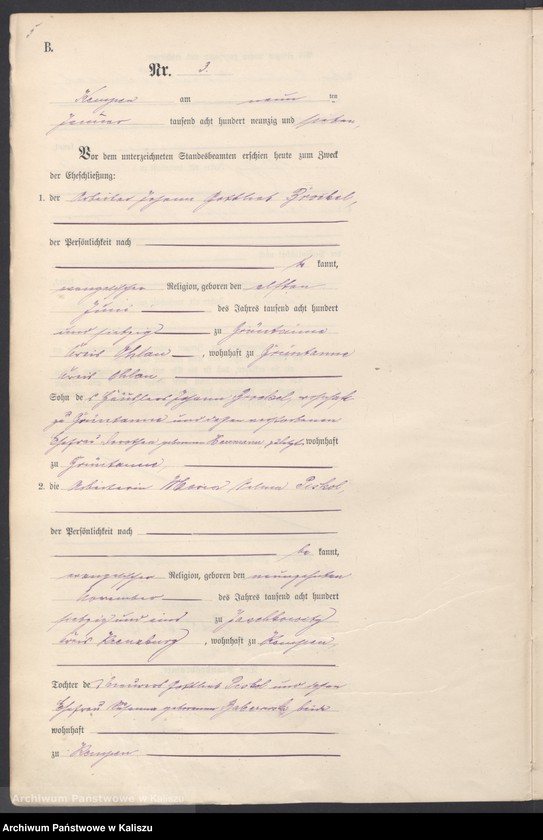 B.
Nr. 3.
Kempen am neun ten
Januar tausend acht hundert neunzig und sieben,
Vor dem unterzeichneten Standesbeamten erschien heute zum Zweck
der Eheschließung:
1. der Arbeiter Johann Gottlieb
der Persönlichkeit nach
be kannt,
evangelischer Religion, geboren den elften
Juni des Jahres tausend acht hundert
und siebzig zu Grüntanne
Kreis Ohlau, wohnhaft zu Grüntanne
Kreis Ohlau,
Sohn des Johann wohnhaft
zu Grüntanne und dessen verstorbenen
Ehefrau geborenen zuletzt wohnhaft
zu Grüntanne,
2. die Arbeiterin Maria
der Persönlichkeit nach
be kannt,
evangelischer Religion, geboren den neunzehnten
November des Jahres tausend acht hundert
siebzig und eins zu
Kreis Kreuzburg, wohnhaft zu Kempen,
Tochter des Gottlieb und dessen
Ehefrau geborenen beide
wohnhaft
zu Kempen
Archiwum Państwowe w Kaliszu
Archiwum Państwowe w Kaliszu